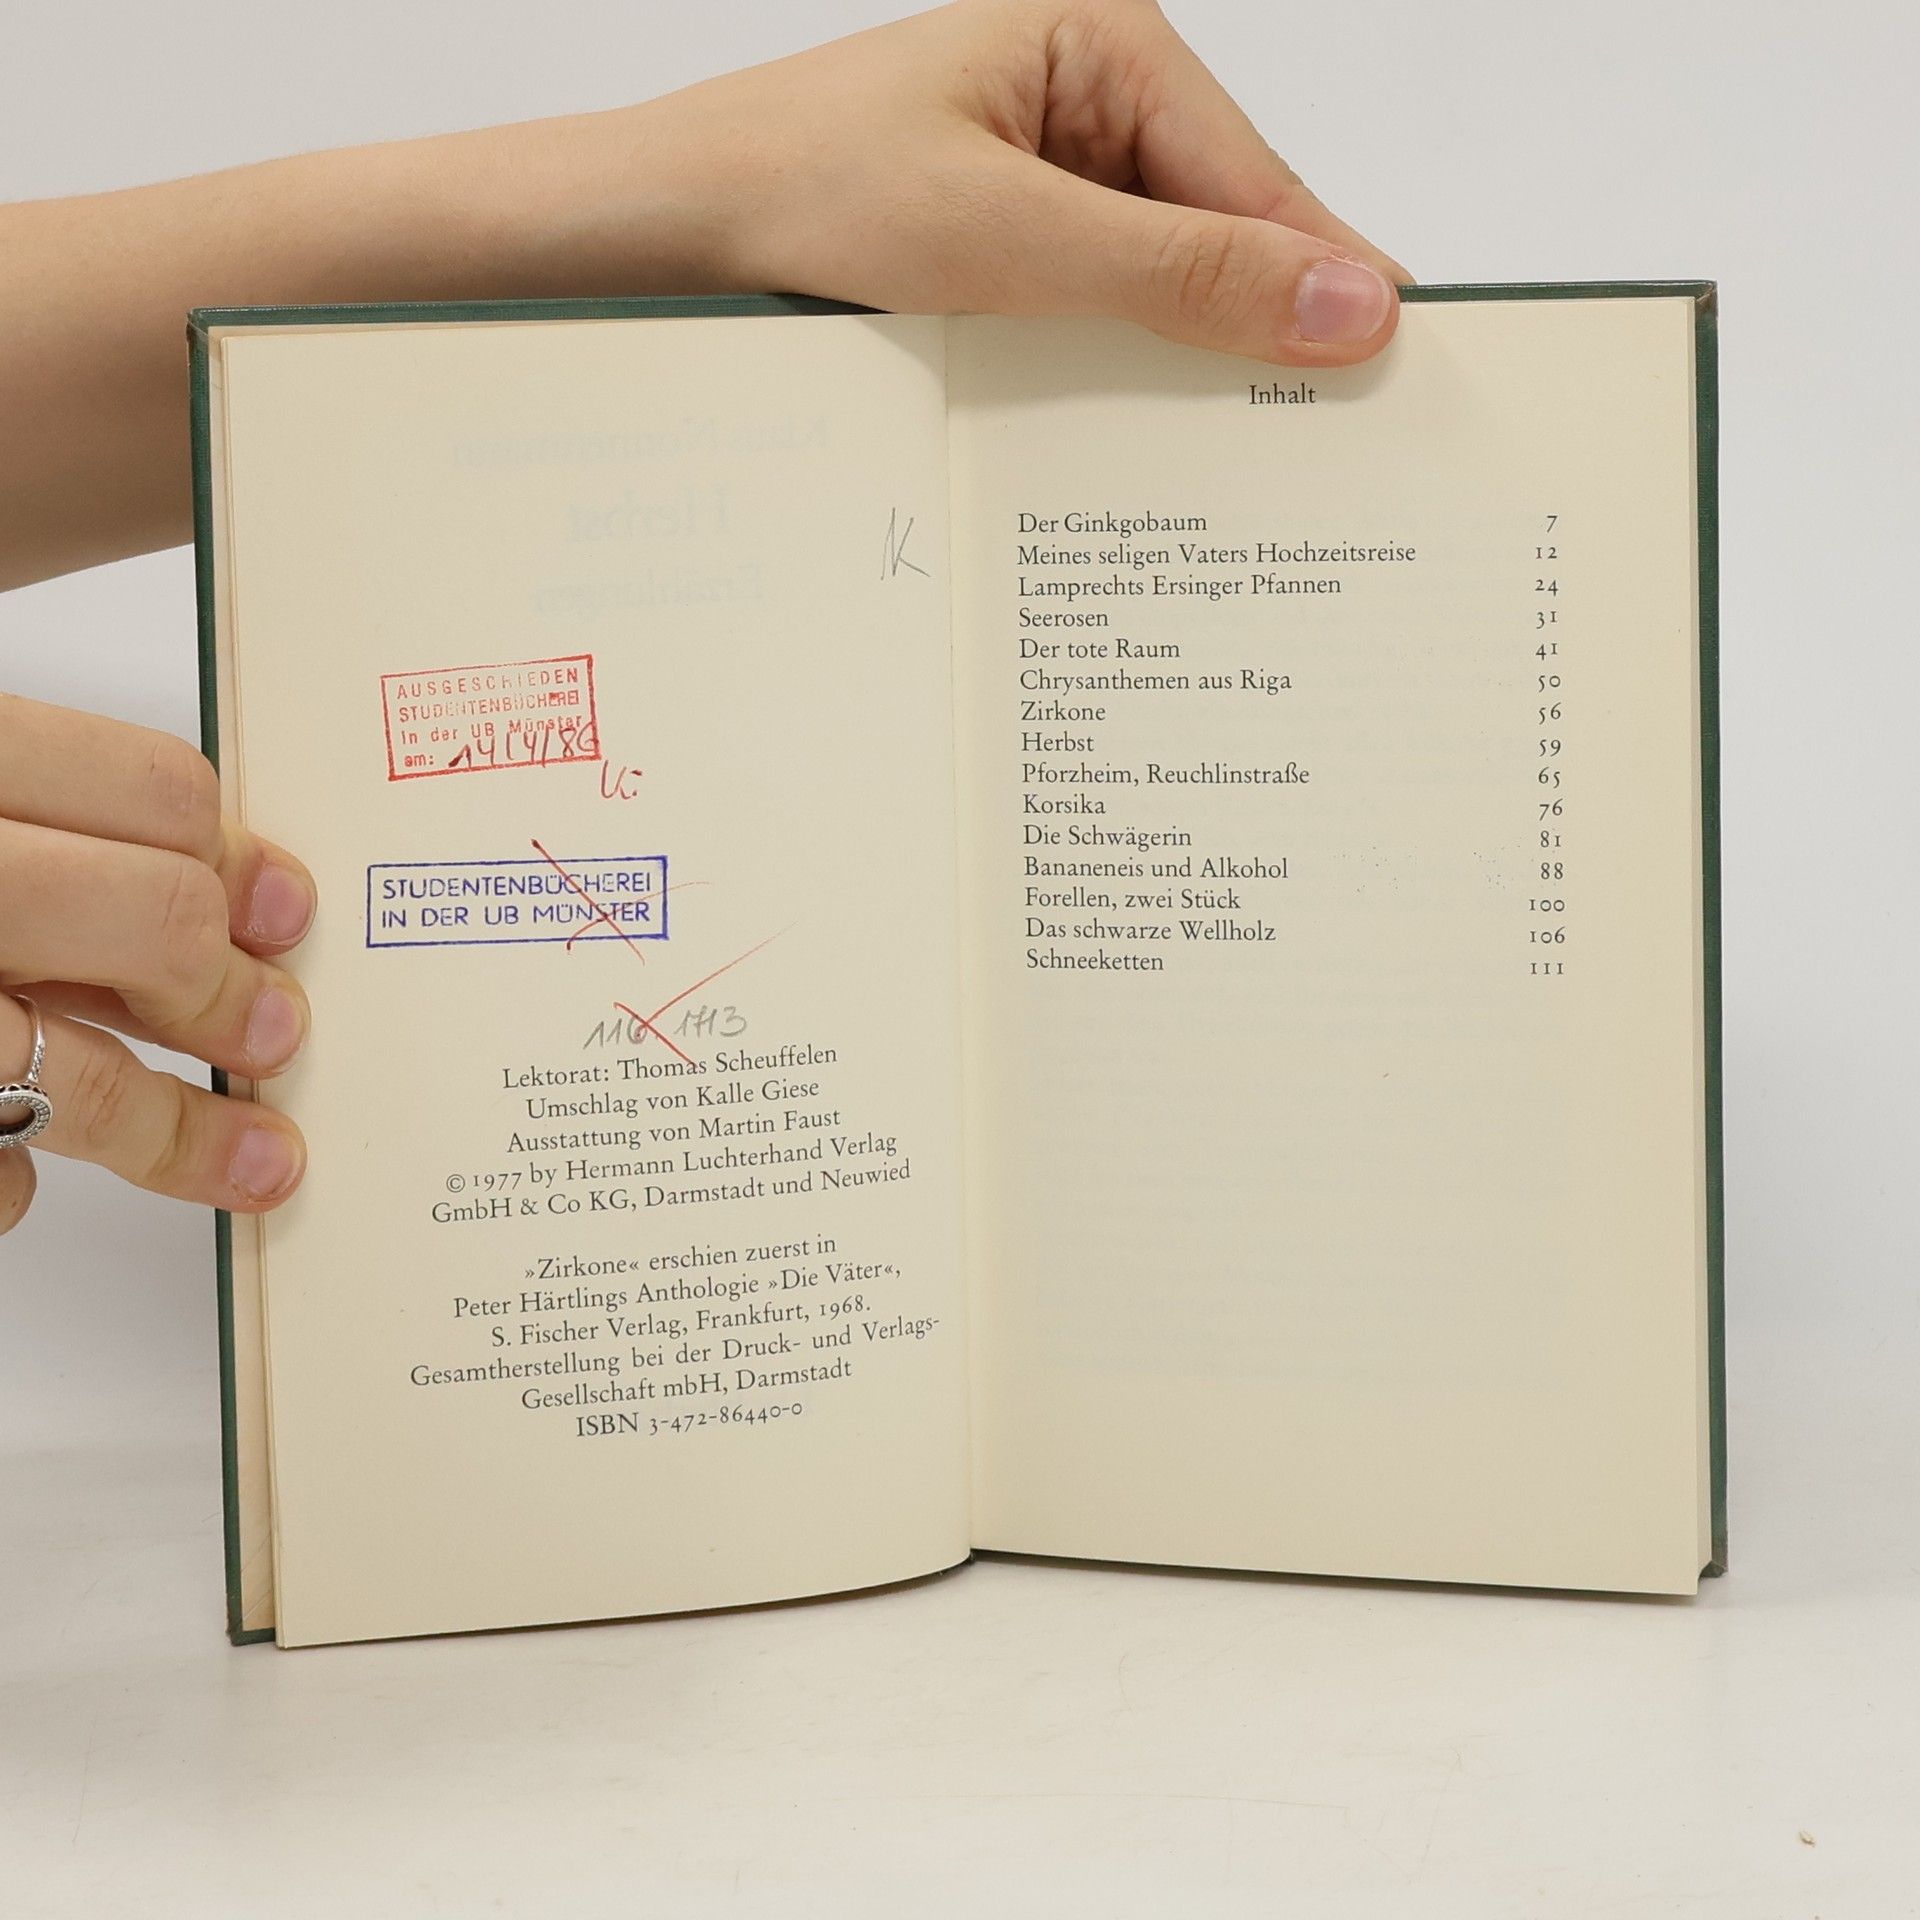 K
AUSGESCHIEDEN
STUDENTENBÜCHEREI
In der UB Münster
am: 14/4/86
K:
STUDENTENBÜCHEREI
IN DER UB MÜNSTER
116 1713
Lektorat: Thomas Scheuffelen
Umschlag von Kalle Giese
Ausstattung von Martin Faust
© 1977 by Hermann Luchterhand Verlag
GmbH & Co KG, Darmstadt und Neuwied
»Zirkone« erschien zuerst in
Peter Härtlings Anthologie »Die Väter«,
S. Fischer Verlag, Frankfurt, 1968.
Gesamtherstellung bei der Druck- und Verlags-
Gesellschaft mbH, Darmstadt
ISBN 3-472-86440-0
Inhalt
Der Ginkgobaum 7
Meines seligen Vaters Hochzeitsreise 12
Lamprechts Ersinger Pfannen 24
Seerosen 31
Der tote Raum 41
Chrysanthemen aus Riga 50
Zirkone 56
Herbst 59
Pforzheim, Reuchlinstraße 65
Korsika 76
Die Schwägerin 81
Bananeneis und Alkohol 88
Forellen, zwei Stück 100
Das schwarze Wellholz 106
Schneeketten 111